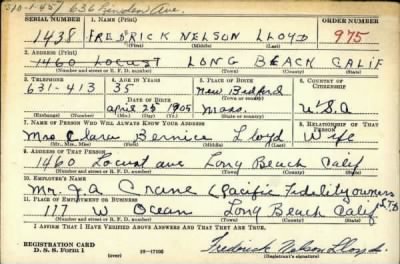 636 Linden Ave.
SERIAL NUMBER 1. NAME (Print) ORDER NUMBER
1438 FREDRICK NELSON LLOYD 975
(First) (Middle) (Last)
2. ADDRESS (Print)
1460 Locust LONG BEACH CALIF
(Number and street or R. F. D. number) (Town) (County) (State)
3. TELEPHONE 4. AGE IN YEARS 5. PLACE OF BIRTH 6. COUNTRY OF CITIZENSHIP
631-413 35 New Bedford
DATE OF BIRTH (Town or county)
april 25 1905 Mass. USA
(Exchange) (No.) (Mo.) (Day) (Yr.) (State or country)
7. NAME OF PERSON WHO WILL ALWAYS KNOW YOUR ADDRESS 8. RELATIONSHIP OF THAT PERSON
Mrs Clara Bernice Lloyd Wife
(Mr., Mrs., Miss) (First) (Middle) (Last)
9. ADDRESS OF THAT PERSON
1460 Locust ave Long Beach Calif
(Number and street or R. F. D. number) (Town) (County) (State)
10. EMPLOYER'S NAME
Mr. J.A. Crane (Pacific Fidelity owners
11. PLACE OF EMPLOYMENT OR BUSINESS LTD
117 W. Ocean Long Beach Calif
(Number and street or R. F. D. number) (Town) (County) (State)
I AFFIRM THAT I HAVE VERIFIED ABOVE ANSWERS AND THAT THEY ARE TRUE.
REGISTRATION CARD
D. S. S. Form 1 (over) Fredrick Nelson Lloyd
(Registrant's signature)